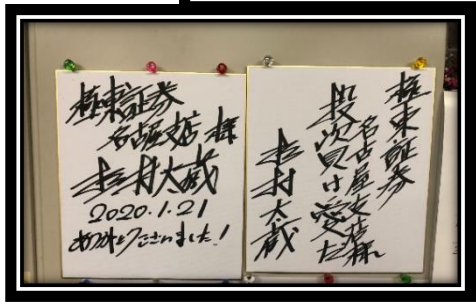 極東証券
名古屋支店 様
杉村太蔵
2020.1.21
ありがとうございました!
極東証券
名古屋支店様
投資は愛だ
杉村太蔵